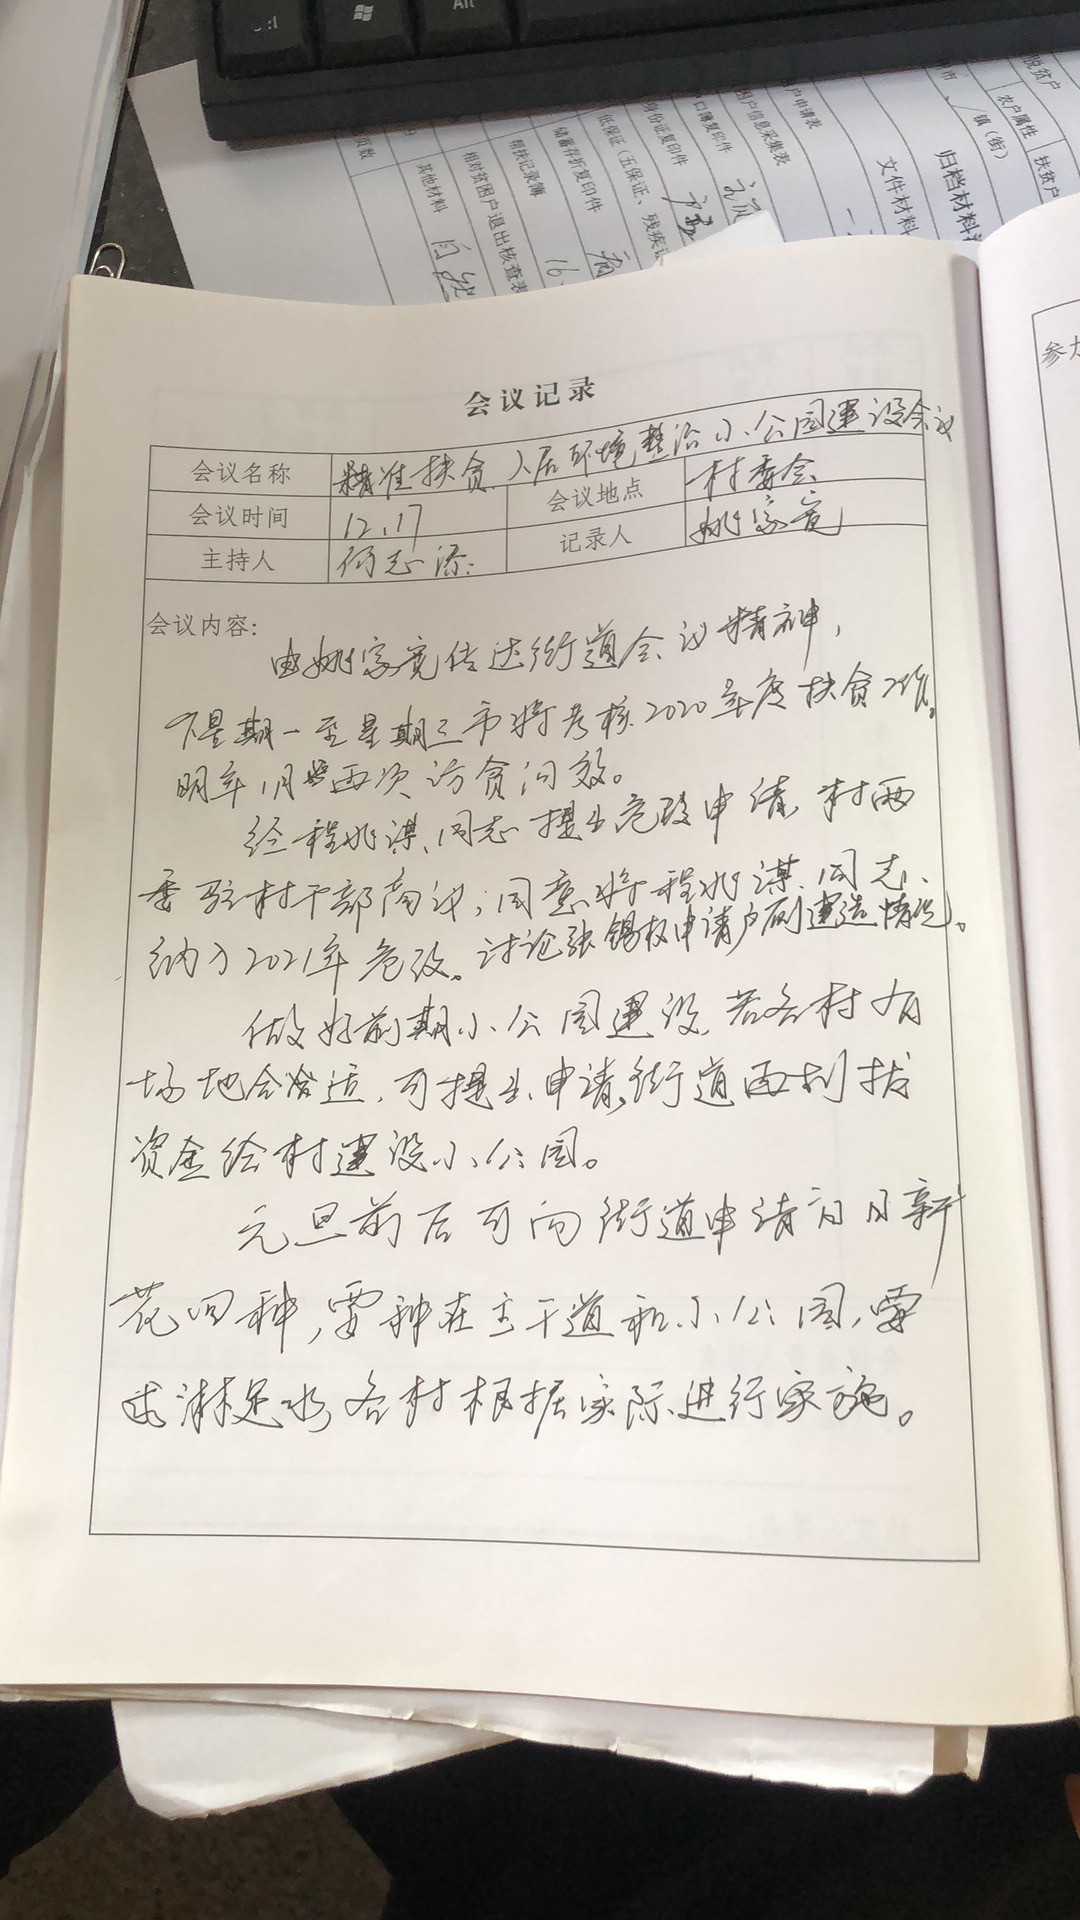 Alt
脱贫户
农户属性
扶贫户
镇（街）
归档材料
文件材料
户申请表
困户信息采集表
口簿复印件
身份证复印件
低保证（五保证、残疾证
储蓄存折复印件
帮扶记录簿
相对贫困户退出核查表
其他材料
页数
16
会议记录
会议名称 精准扶贫、人居环境整治小公园建设会议
会议时间 12.17 会议地点 村委会
主持人 何志添 记录人 姚家宽
会议内容:
由姚家宽传达街道会议精神，
下星期一至星期三市将考核2020年度扶贫工作。
明年1月两次访贫问效。
经程姚谋同志提出危改申请，村两
委驻村干部商议，同意将程姚谋同志
纳入2021年危改。讨论张锡权申请户厕建造情况。
做好前期小公园建设，若各村有
场地合适，可提出申请，街道再划拨
资金给村建设小公园。
元旦前后可向街道申请日日新
花回种，需种在主干道和小公园，需
淋足水，各村根据实际进行实施。
参加